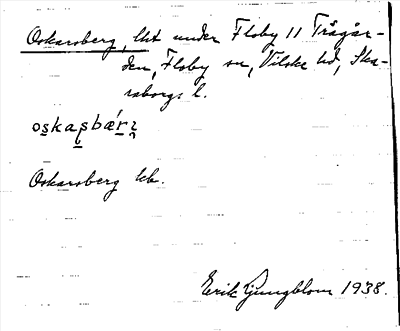 Oskarsberg, lht under Floby 11 Trågår-
den, Floby sn, Vilske hd, Ska-
raborgs l.
oskaʂbǽr̥ɪ
Oskarsberg kb.
Erik Ljungblom 1938.